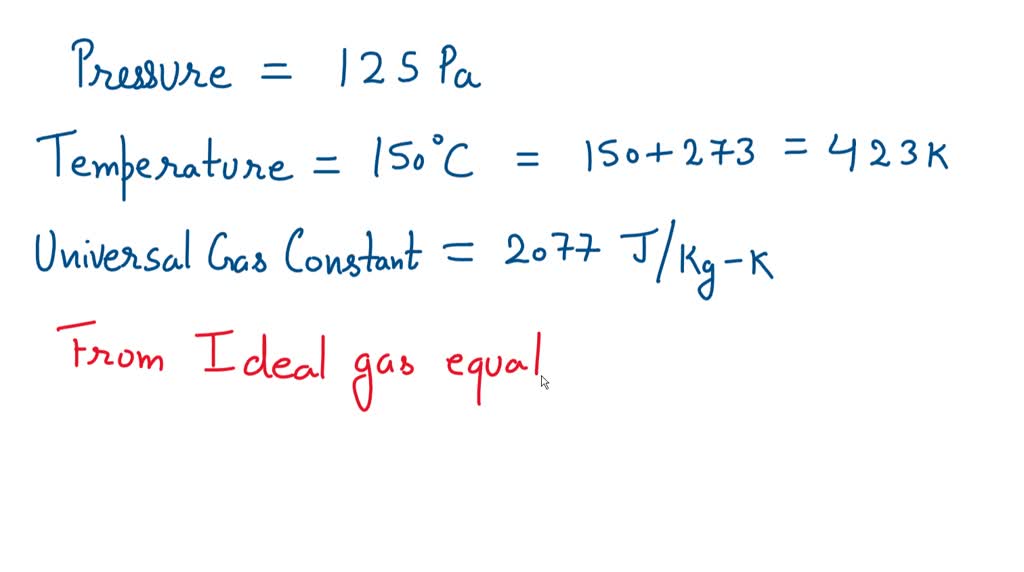 Pressure = 125 Pa
Temperature = 150°C = 150+273 = 423K
Universal Gas Constant = 2077 J/Kg-K
From Ideal gas equal